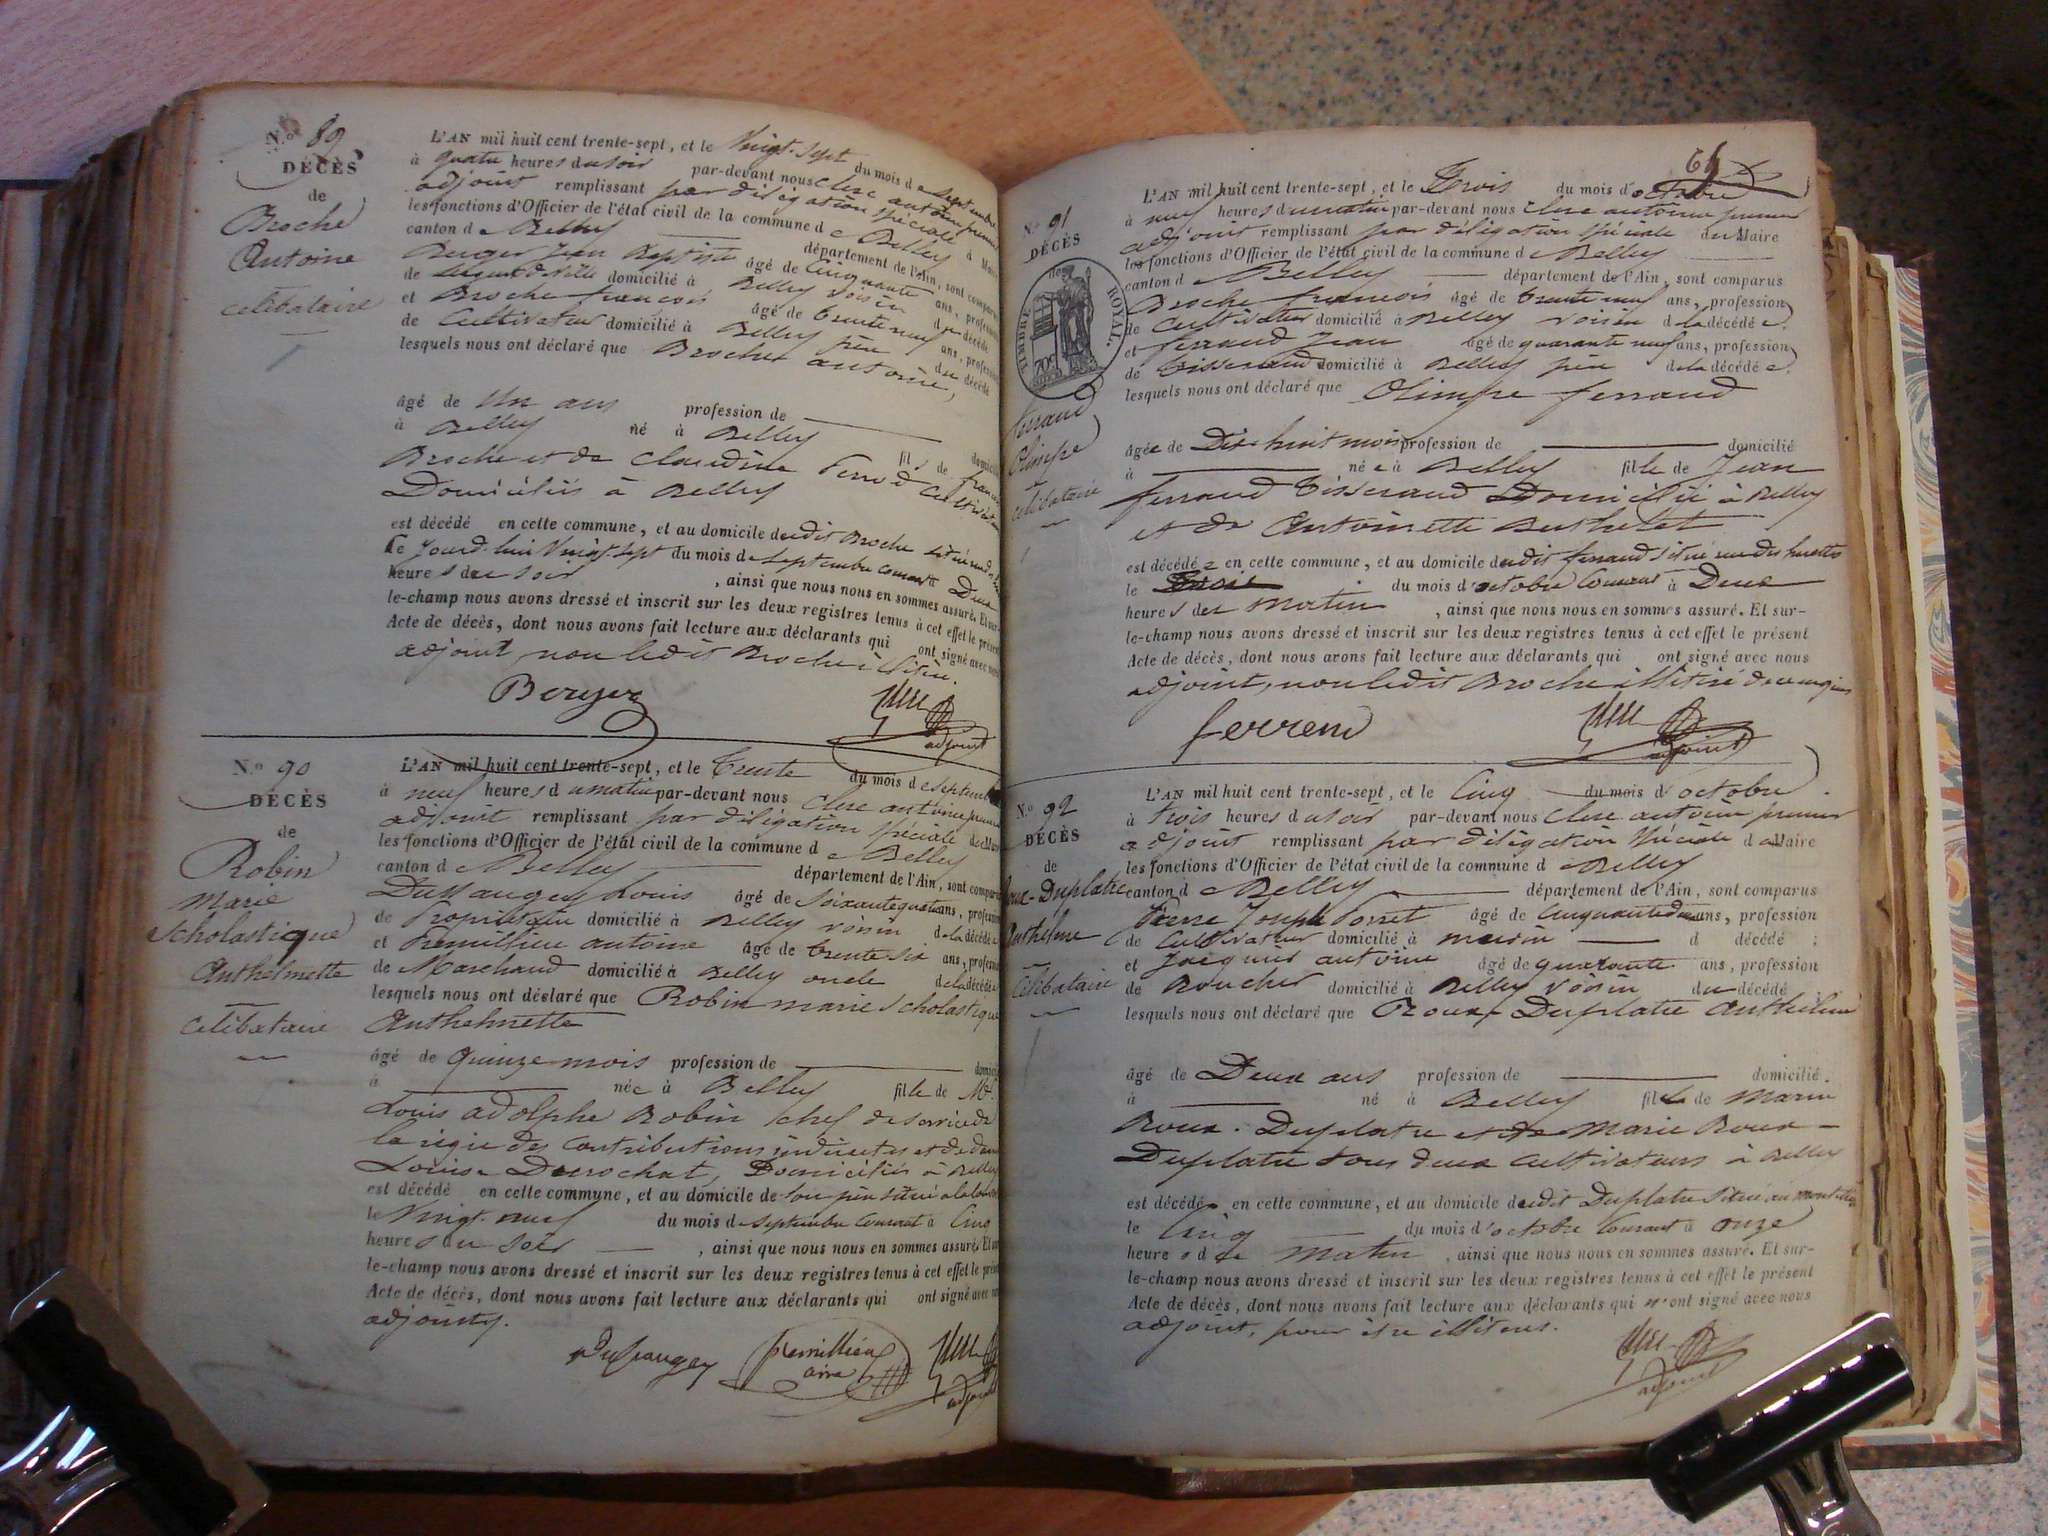 N.º 89
DÉCÈS
de
Broche
Antoine
celibataire
L'AN mil huit cent trente-sept, et le Vingt-Sept du mois de septembre
à quatre heures du soir par-devant nous Clerc antoine premier
adjoint remplissant par délégation spéciale
les fonctions d'Officier de l'état civil de la commune de Belley
canton de Belley département de l'Ain, sont comparus
Berger Jean Baptiste âgé de Cinquante ans, profession
de Sergent de Ville domicilié à Belley voisin du décédé
et Broche françois âgé de trente neuf ans, profession
de Cultivateur domicilié à Belley père du décédé
lesquels nous ont déclaré que Broche antoine,
âgé de Un an profession de domicilié
à Belley né à Belley fils de françois
Broche et de Claudine Cultivateurs
Domiciliés à Belley
est décédé en cette commune, et au domicile dudit Broche situé
le Jourd'hui Vingt-Sept du mois de septembre courant Deux
heures du soir, ainsi que nous nous en sommes assuré. Et sur-
le-champ nous avons dressé et inscrit sur les deux registres tenus à cet effet le présent
Acte de décès, dont nous avons fait lecture aux déclarants qui ont signé avec nous
adjoint, non ledit Broche
Berger
Clerc adjoint
N.º 90
DÉCÈS
de
Robin
Marie
Scholastique
Anthelmette
celibataire
L'AN mil huit cent trente-sept, et le trente du mois de septembre
à neuf heures du matin par-devant nous Clerc antoine premier
adjoint remplissant par délégation spéciale
les fonctions d'Officier de l'état civil de la commune de Belley
canton de Belley département de l'Ain, sont comparus
Dussaugey Louis âgé de Soixante quatre ans, profession
de Propriétaire domicilié à Belley voisin de la décédée
et Premillieu antoine âgé de trente six ans, profession
de Marchand domicilié à Belley oncle de la décédée
lesquels nous ont déclaré que Robin marie Scholastique
Anthelmette
âgé de quinze mois profession de
à née à Belley fille de Mr.
Louis adolphe Robin chef de service de
la régie des Contributions indirectes et de dame
Louise Decrochat, Domiciliés à Belley
est décédé en cette commune, et au domicile de son père situé
le Vingt-neuf du mois de septembre courant à Cinq
heures du soir, ainsi que nous nous en sommes assuré. Et sur-
le-champ nous avons dressé et inscrit sur les deux registres tenus à cet effet le présent
Acte de décès, dont nous avons fait lecture aux déclarants qui ont signé avec nous
adjoint.
Dussaugey
premillieu
Clerc
adjoint
N.º 91
DÉCÈS
de
TIMBRE ROYAL.
ferrand
Olimpe
celibataire
L'AN mil huit cent trente-sept, et le Trois du mois d'octobre
à neuf heures du matin par-devant nous Clerc antoine premier
adjoint remplissant par délégation spéciale du Maire
les fonctions d'Officier de l'état civil de la commune de Belley
canton d Belley département de l'Ain, sont comparus
Broche francois âgé de trente neuf ans, profession
de Cultivateur domicilié à Belley voisin de la décédée;
et ferrand Jean âgé de quarante neuf ans, profession
de tisserand domicilié à Belley père de la décédée
lesquels nous ont déclaré que Olimpe ferrand
âgée de Dix-huit mois profession de domicilié
à née à Belley fille de Jean
ferrand tisserand Domicilié à Belley
et de Antoinette Berthelet
est décédée en cette commune, et au domicile dudit ferrand situé rue des
le Trois du mois d'octobre Courant à Deux
heures du matin, ainsi que nous nous en sommes assuré. Et sur-
le-champ nous avons dressé et inscrit sur les deux registres tenus à cet effet le présent
Acte de décès, dont nous avons fait lecture aux déclarants qui ont signé avec nous
adjoint, non ledit Broche illitiré de ce enquis
ferrend
Clerc
adjoint
N.º 92
DÉCÈS
de
Roux-Duplatre
Anthelme
Celibataire
L'AN mil huit cent trente-sept, et le Cinq du mois d'octobre
à trois heures du soir par-devant nous Clerc antoine premier
adjoint remplissant par délégation spéciale du Maire
les fonctions d'Officier de l'état civil de la commune de Belley
canton de Belley département de l'Ain, sont comparus
Pierre Joseph âgé de Cinquante deux ans, profession
de Cultivateur domicilié à d décédé;
et Jacquier antoine âgé de quarante ans, profession
de Boucher domicilié à Belley voisin du décédé
lesquels nous ont déclaré que Roux-Duplatre Anthelme
âgé de Deux ans profession de domicilié
à né à Belley fils de Marin
Roux-Duplatre et de Marie Roux-
Duplatre tous deux cultivateurs à Belley
est décédé en cette commune, et au domicile dudit Duplatre situé au
le Cinq du mois d'octobre Courant à onze
heures du Matin, ainsi que nous nous en sommes assuré. Et sur-
le-champ nous avons dressé et inscrit sur les deux registres tenus à cet effet le présent
Acte de décès, dont nous avons fait lecture aux déclarants qui n'ont signé avec nous
adjoint, pour être illiterés.
Clerc
adjoint